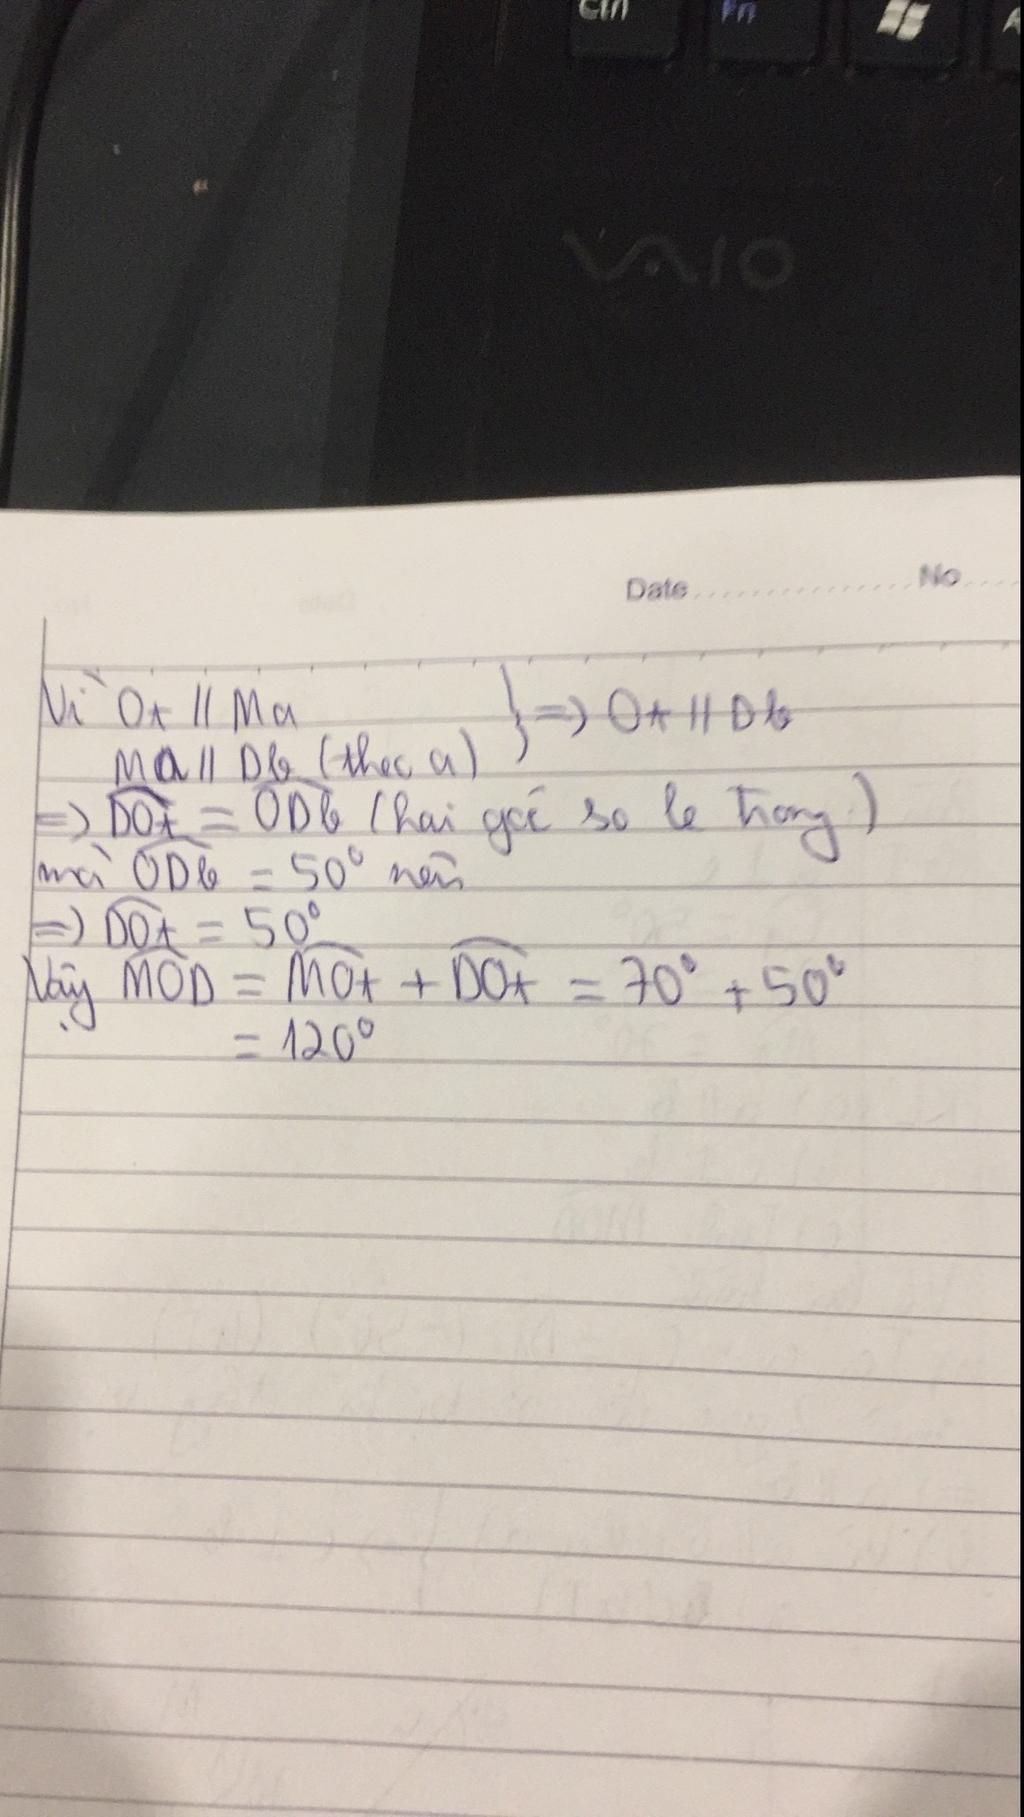 Ctrl Fn A
VAIO
Date No
Vì Ox // Ma } => Ox // Db
Ma // Db (theo a)
=> DOx = ODb (hai góc so le trong)
mà ODb = 50° nên
=> DOx = 50°
Vậy MOD = MOx + DOx = 70° + 50°
= 120°